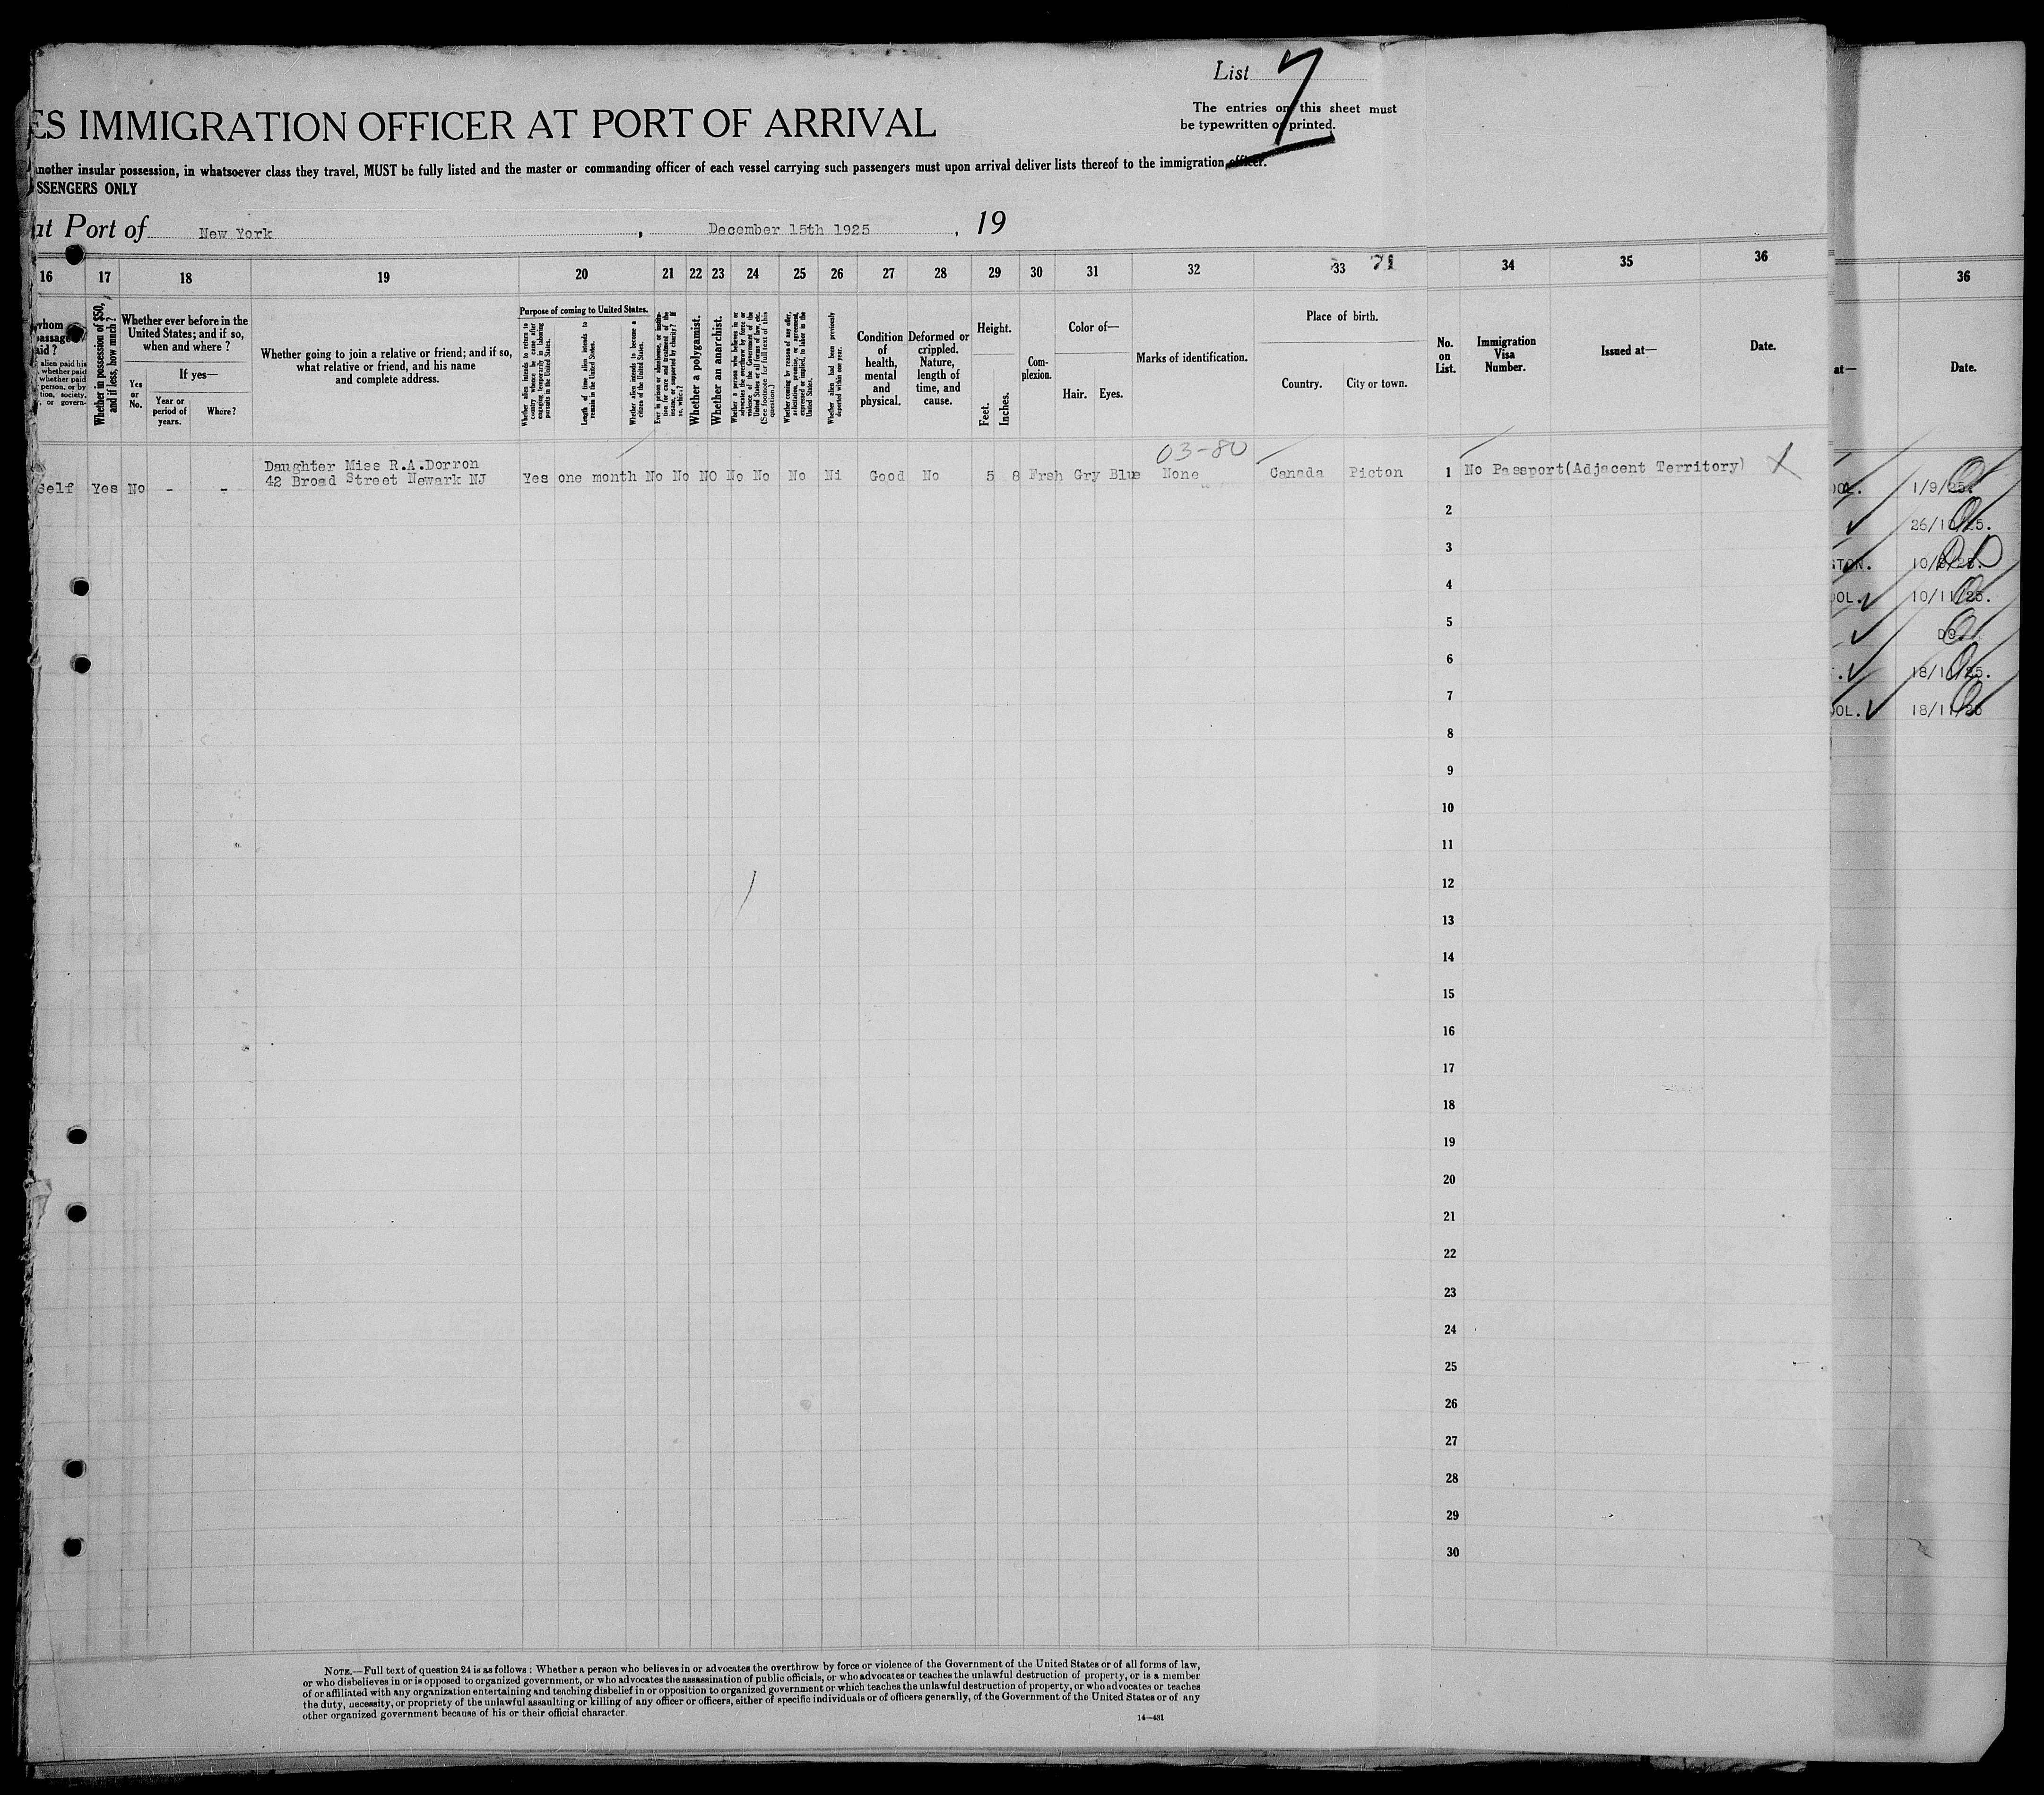 List 7
The entries on this sheet must
be typewritten or printed.
ES IMMIGRATION OFFICER AT PORT OF ARRIVAL
another insular possession, in whatsoever class they travel, MUST be fully listed and the master or commanding officer of each vessel carrying such passengers must upon arrival deliver lists thereof to the immigration officer.
SSENGERS ONLY
at Port of New York , December 15th 1925 , 19
16 17 18 19 20 21 22 23 24 25 26 27 28 29 30 31 32 33 71 34 35 36
36
whom
passage
aid?
alien paid his
whether paid
whether paid
person, or by
tion, society,
, or govern-
Whether in possession of $50,
and if less, how much?
Whether ever before in the
United States; and if so,
when and where?
Yes
or
No.
If yes—
Year or
period of
years.
Where?
Whether going to join a relative or friend; and if so,
what relative or friend, and his name
and complete address.
Purpose of coming to United States.
Whether alien intends to return to
country whence he came after
engaging temporarily in laboring
pursuits in the United States.
Length of time alien intends to
remain in the United States.
Whether alien intends to become a
citizen of the United States.
Ever in prison or almshouse, or institu-
tion for care and treatment of the
insane, or supported by charity? If
so, which?
Whether a polygamist.
Whether an anarchist.
Whether a person who believes in or
advocates the overthrow by force or
violence of the Government of the
United States or all forms of law, etc.
(See footnote for full text of this
question.)
Whether coming by reason of any offer,
solicitation, promise, or agreement,
expressed or implied, to labor in the
United States.
Whether alien had been previously
deported within one year.
Condition
of
health,
mental
and
physical.
Deformed or
crippled.
Nature,
length of
time, and
cause.
Height.
Feet.
Inches.
Com-
plexion.
Color of—
Hair.
Eyes.
Marks of identification.
Place of birth.
Country.
City or town.
No.
on
List.
Immigration
Visa
Number.
Issued at—
Date.
at—
Date.
03-80
Daughter Miss R.A.Dorron
42 Broad Street Newark NJ
Self Yes No - - Yes one month No No NO No No No Ni Good No 5 8 Frsh Gry Blue None Canada Picton 1 No Passport(Adjacent Territory) X
2
3
4
5
6
7
8
9
10
11
12
13
14
15
16
17
18
19
20
21
22
23
24
25
26
27
28
29
30
OOL. 1/9/25.
26/10/25.
GTON.
OOL. 10/11/25.
DO.
18/11/25.
OOL. 18/11/25
NOTE.—Full text of question 24 is as follows: Whether a person who believes in or advocates the overthrow by force or violence of the Government of the United States or of all forms of law,
or who disbelieves in or is opposed to organized government, or who advocates the assassination of public officials, or who advocates or teaches the unlawful destruction of property, or is a member
of or affiliated with any organization entertaining and teaching disbelief in or opposition to organized government or which teaches the unlawful destruction of property, or who advocates or teaches
the duty, necessity, or propriety of the unlawful assaulting or killing of any officer or officers, either of specific individuals or of officers generally, of the Government of the United States or of any
other organized government because of his or their official character.
14—431